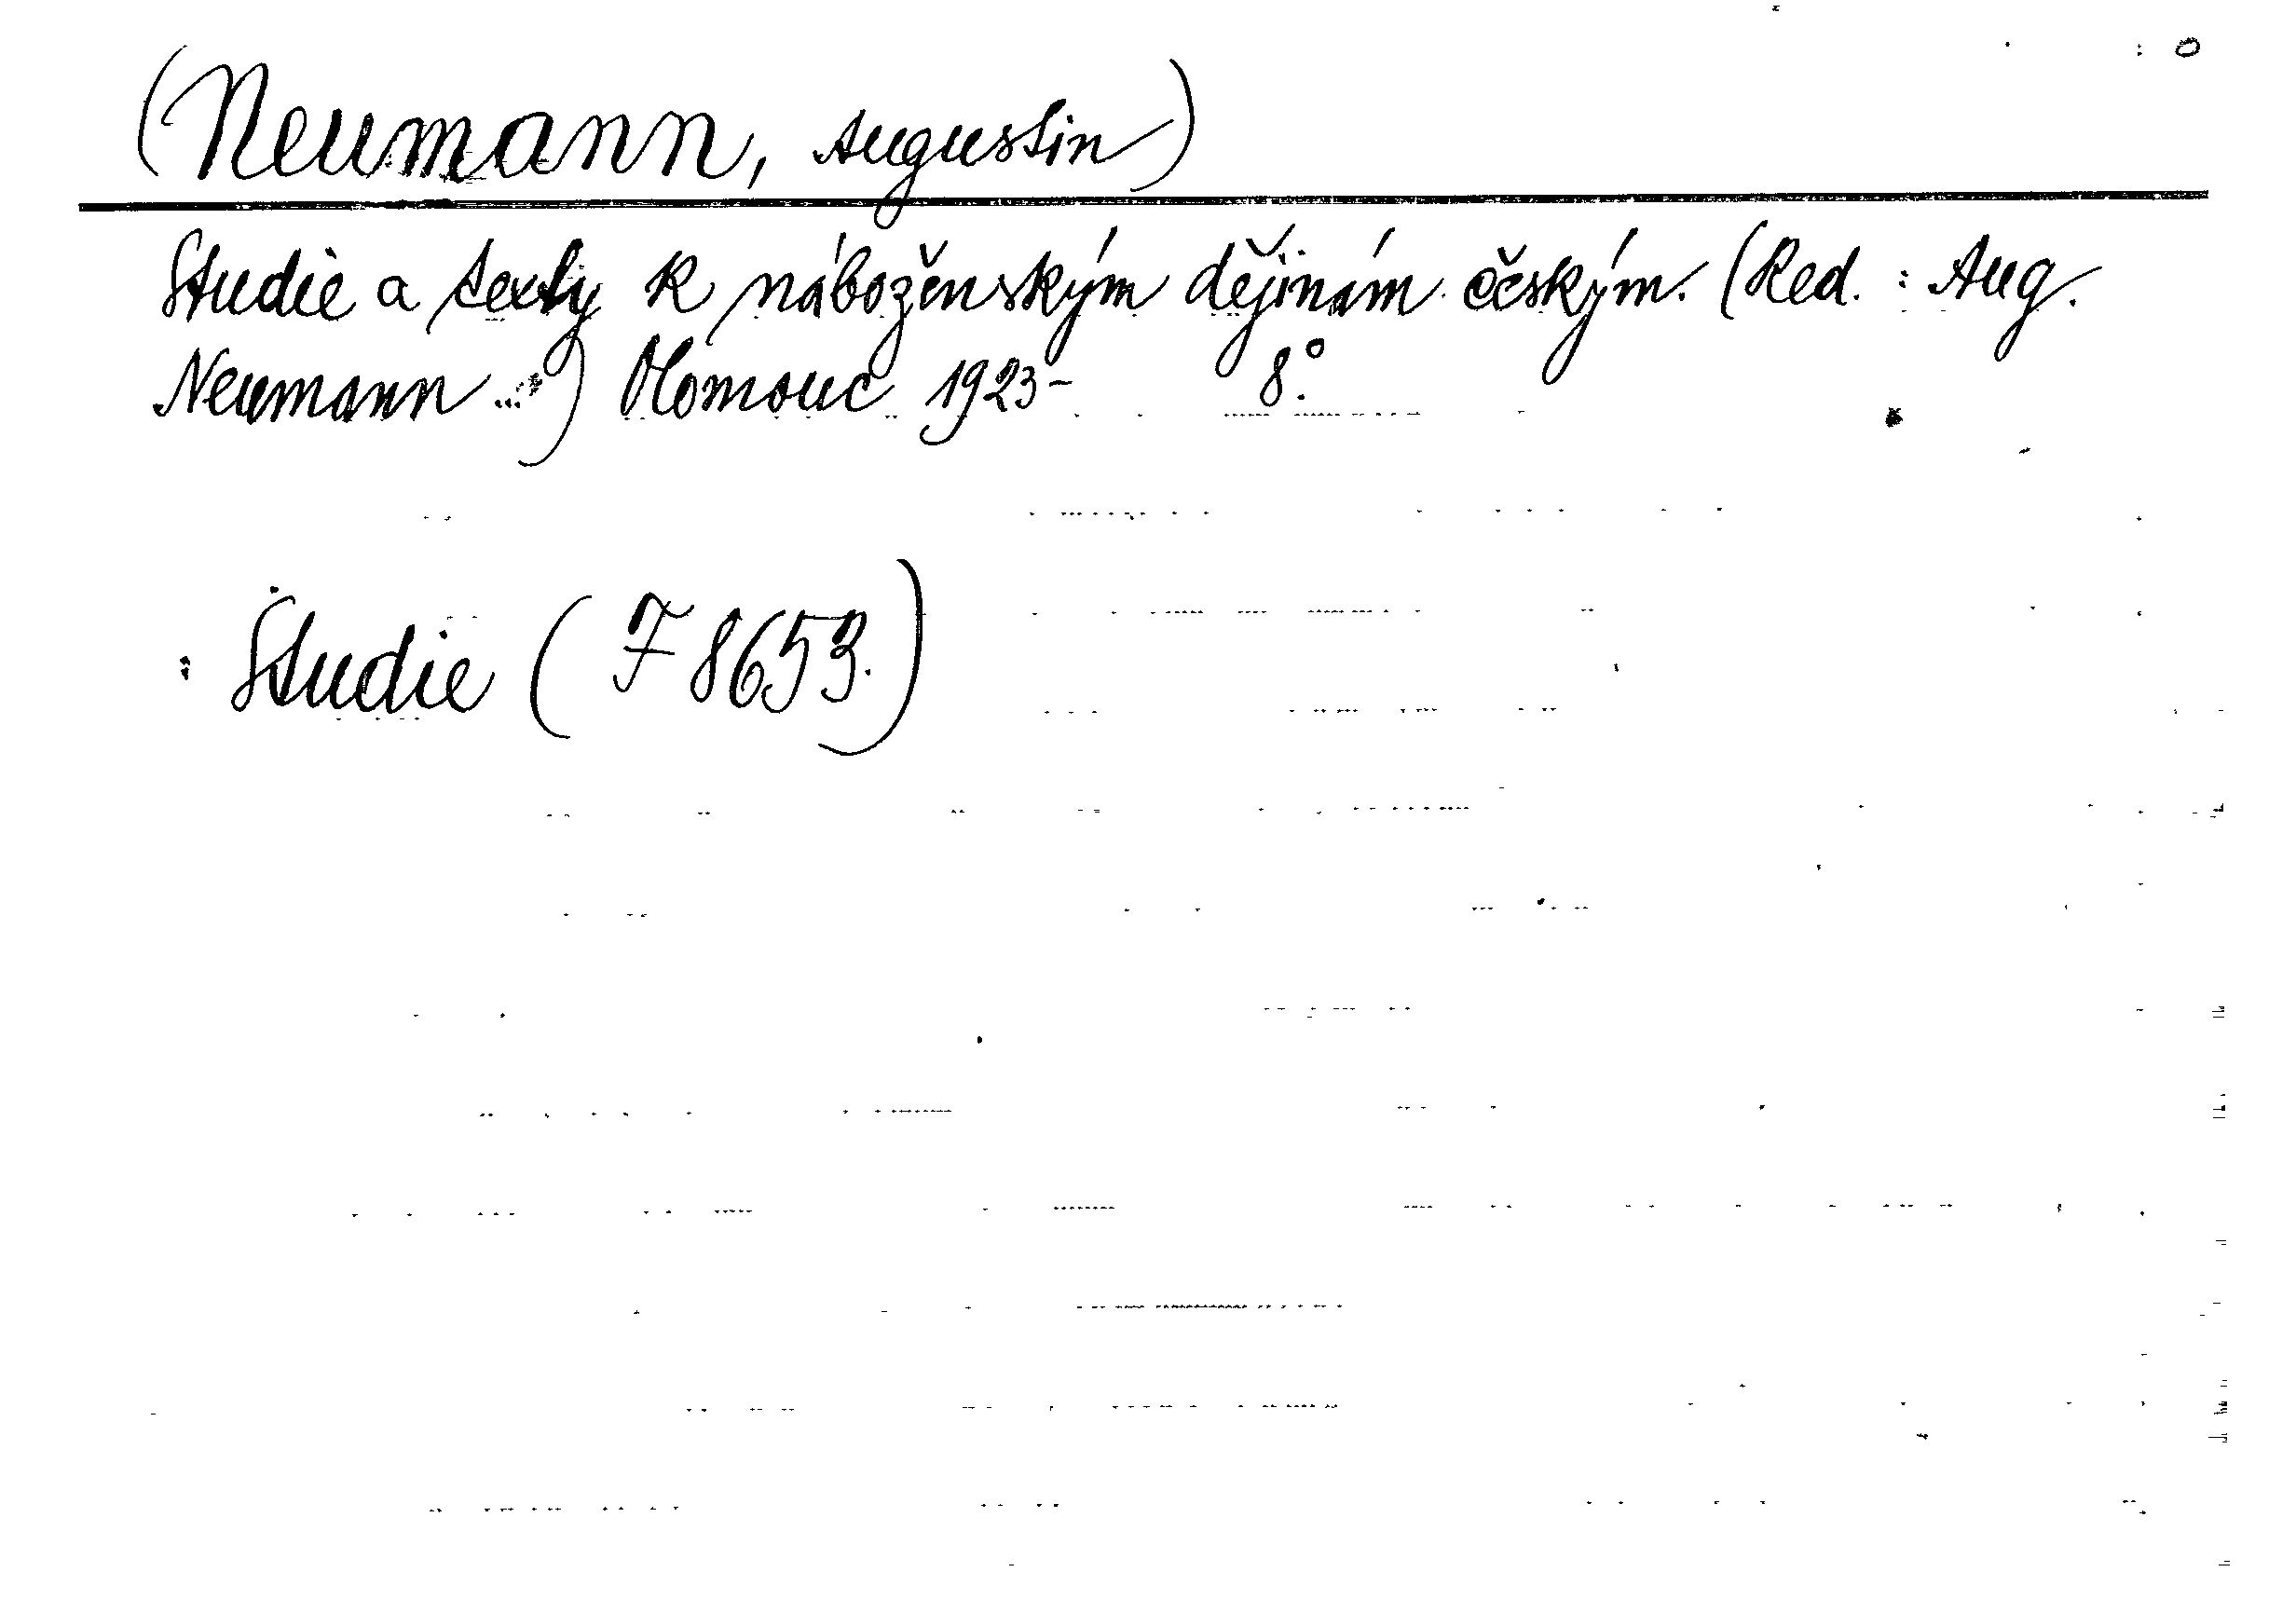 (Neumann, Augustin)
Studie a texty k náboženským dějinám českým. (Red.: Aug.
Neumann...) Olomouc 1923- 8°.
: Studie (F 8653.)